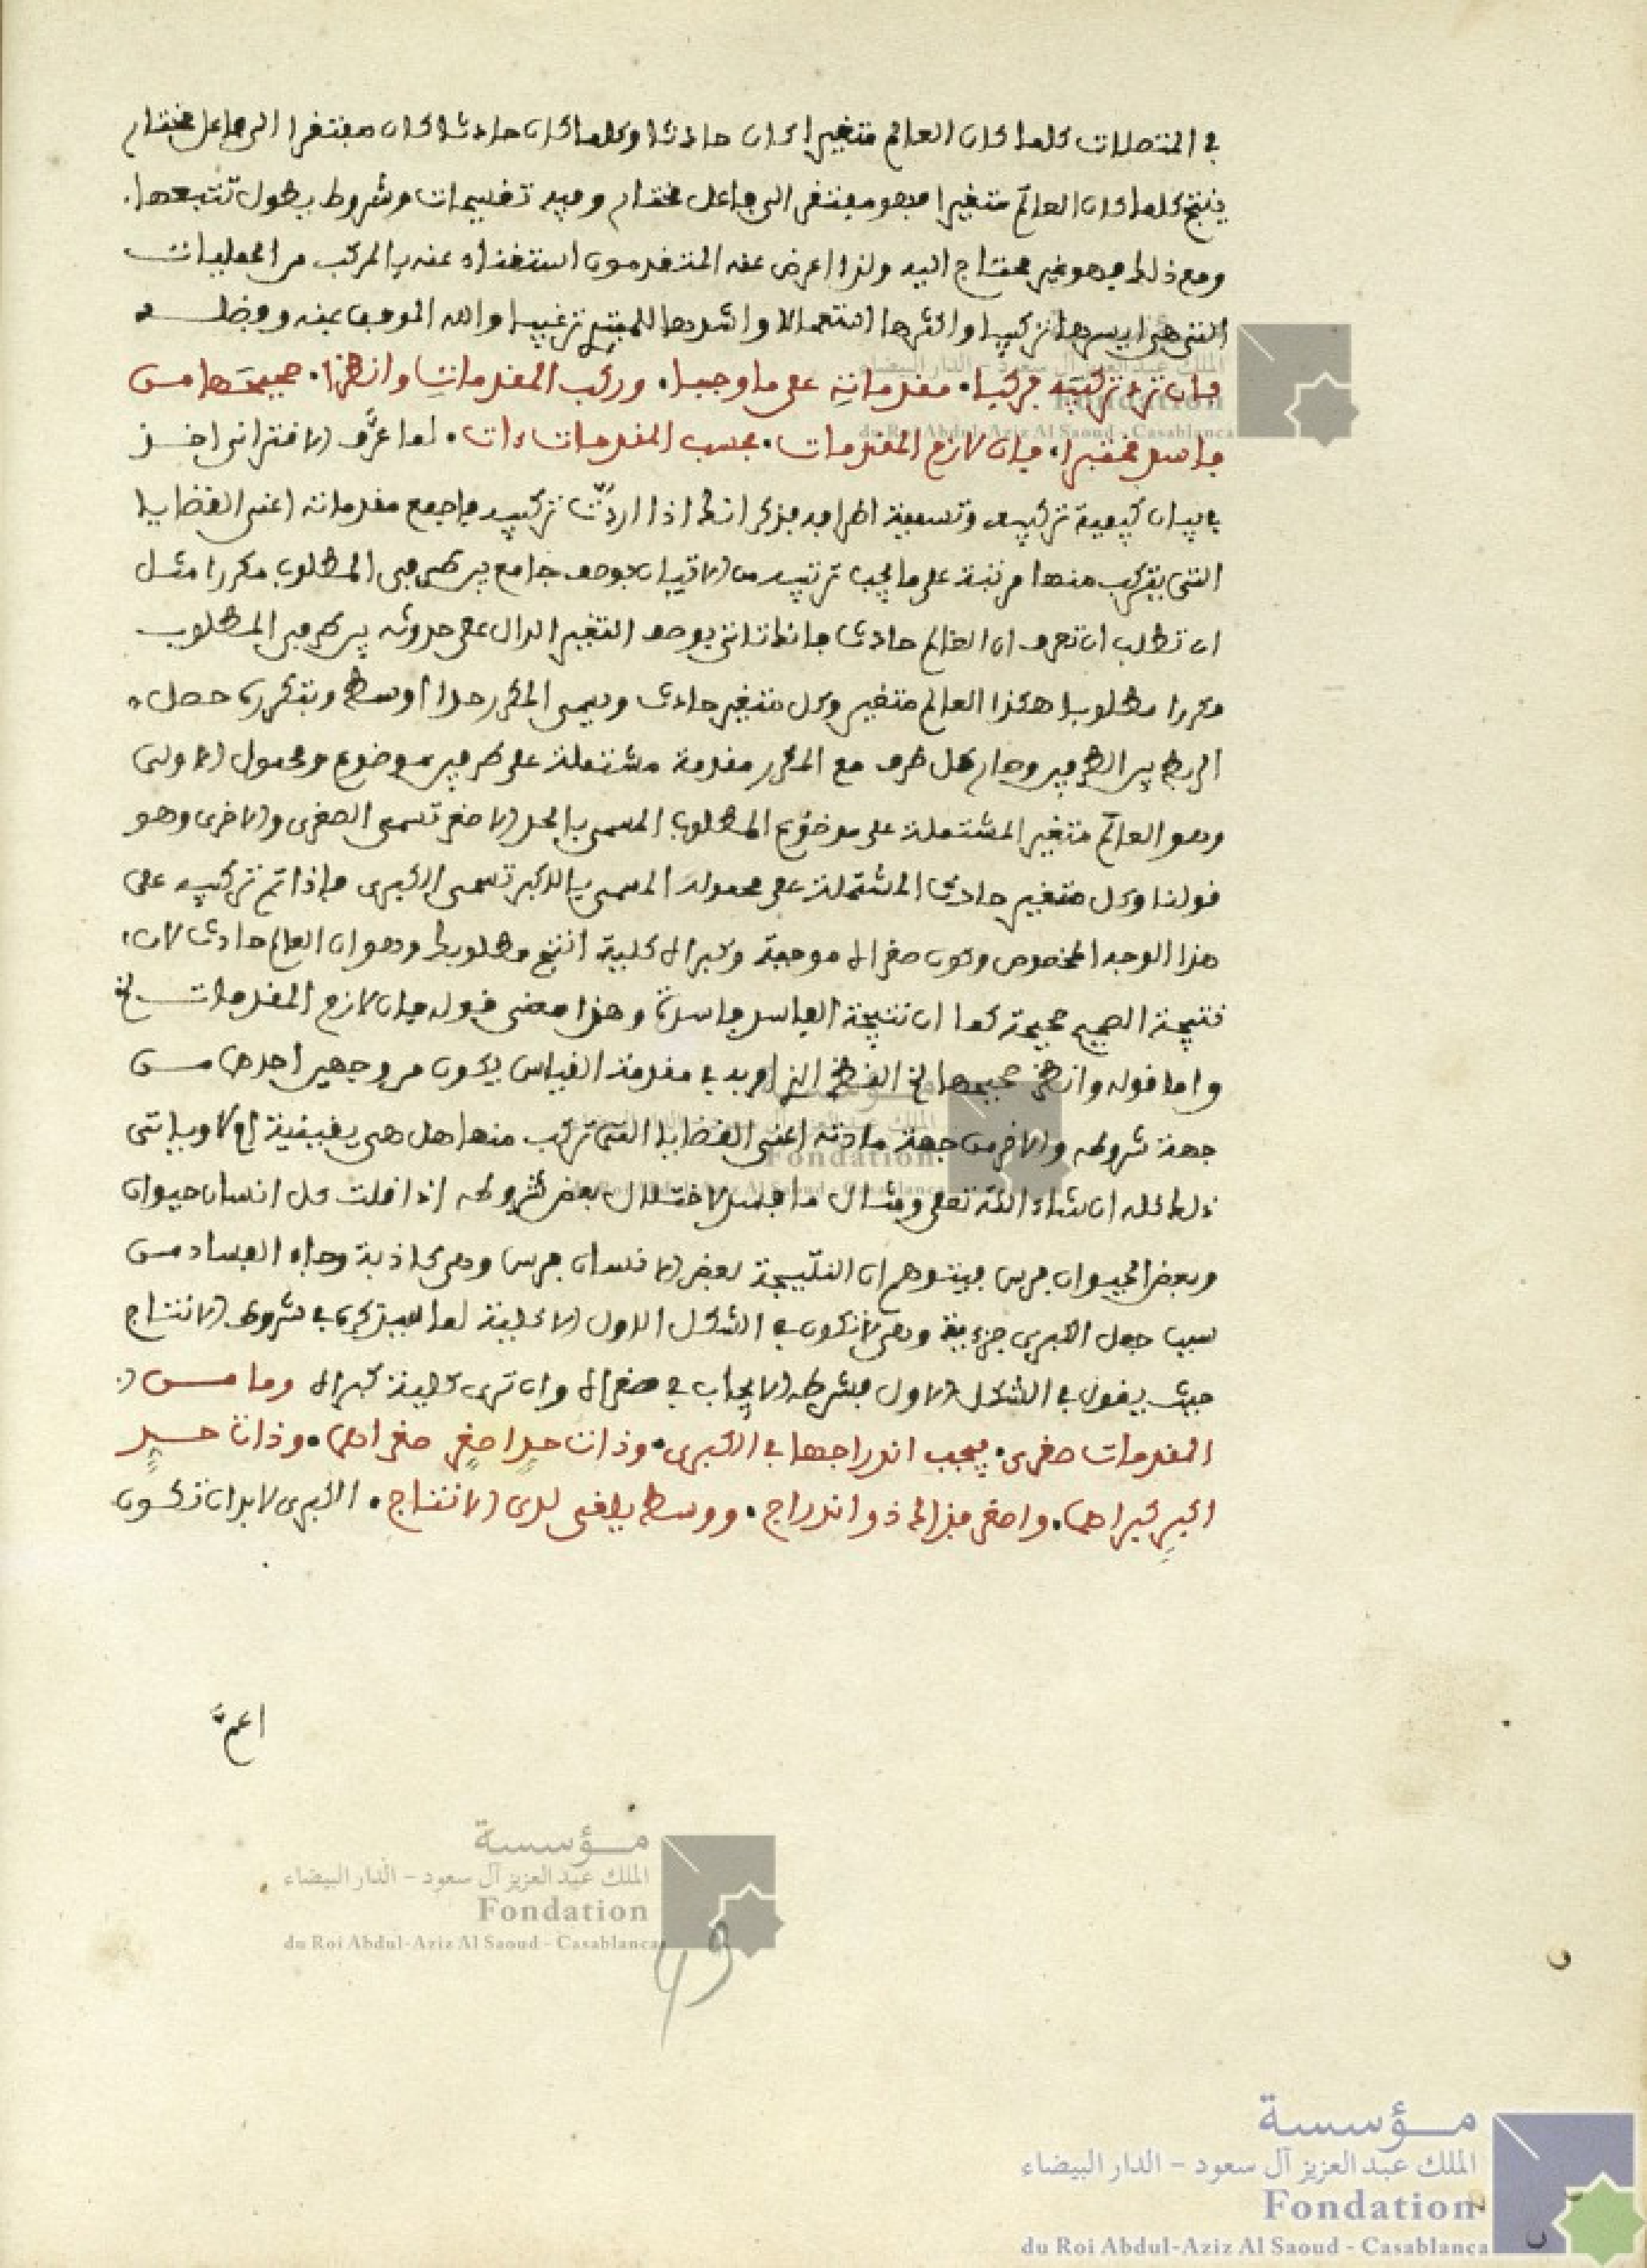 في المتصلات كلما كان العالم متغيرا كان حادثا وكلما كان حادثا كان مفتقرا الى فاعل مختار
ينتج كلما كان العالم متغيرا فهو مفتقر الى فاعل مختار وفيه تقسيمات وشروط يطول تتبعها.
ومع ذلك فهو غير محتاج اليه ولذا اعرض عنه المتقدمون استغناء عنه بالمركب من الحمليات
التى هي ايسرها تركيبا واكثرها استعمالا واشدها للمبتدي ترغيبا والله الموفق بمنه وفضله
فان ترد تركيبه فركبا • مقدماته على ما وجبا • ورتب المقدمات وانظرا • صحيحها من
فاسد مختبرا • فان لازم المقدمات • بحسب المقدمات ءات • لما عرَّف الاقتراني اخذ
في بيان كيفية تركيبه وتسمية اطرافه فذكر انك اذا اردت تركيبه فاجمع مقدماته اعني القضايا
التى يتركب منها مرتبة على ما يجب ترتيبه من الاتيان بوصف جامع بين طرفي المطلوب مكررا مثل
ان تطلب ان تعرف ان العالم حادث فانك تاتي بوصف التغير الدال على حدوثه بين طرفي المطلوب
مكررا مطلوبا هكذا العالم متغير وكل متغير حادث ويسمى المكرر حدا اوسط وبتكرره حصل
الربط بين الطرفين وصار كل طرف مع المكرر مقدمة مشتملة على طرفين موضوع ومحمول الاولى
وهو العالم متغير المشتملة على موضوع المطلوب المسمى بالحد الاصغر تسمى الصغرى والاخرى وهو
قولنا وكل متغير حادث المشتملة على محموله المسمى بالاكبر تسمى الكبرى فاذا تم تركيبه على
هذا الوجه المخصوص وكون صغراه موجبة وكبراه كلية انتج مطلوبك وهو ان العالم حادث لان
نتيجة الصحيح صحيحة كما ان نتيجة الفاسد فاسدة وهذا معنى قوله فان لازم المقدمات الخ
واما قوله وانظر صحيحها الخ النظر الذي اريد في مقدمة القياس يكون من وجهين احدهما من
جهة شروطه والاخر من جهة مادته اعني القضايا التى تركب منها هل هي يقينية ام لا وياتي
ذلك كله ان شاء الله تعلى ومثال ما فسد لاختلال بعض شروطه اذا قلت كل انسان حيوان
وبعض الحيوان فرس فيتوهم ان النتيجة بعض الانسان فرس وهي كاذبة وجاء الفساد من
سبب جعل الكبرى جزءية وهي لا تكون في الشكل الاول الا كلية لما سيذكره في شروط الانتاج
حيث يقول في الشكل الاول فشرطه الايجاب في صغراه وان ترى كلية كبراه وما من ا
المقدمات صغرى • فيجب اندراجها في الكبرى • وذات حد اصغر صغراهما • وذات حد
اكبر كبراهما • واصغر فذاك ذو اندراج • ووسط يلغى لدى الانتاج • الكبرى لا بد ان تكون
اعم
مؤسسة
الملك عبد العزيز آل سعود - الدار البيضاء
Fondation
du Roi Abdul-Aziz Al Saoud - Casablanca
49
مؤسسة
الملك عبد العزيز آل سعود - الدار البيضاء
Fondation
du Roi Abdul-Aziz Al Saoud - Casablanca